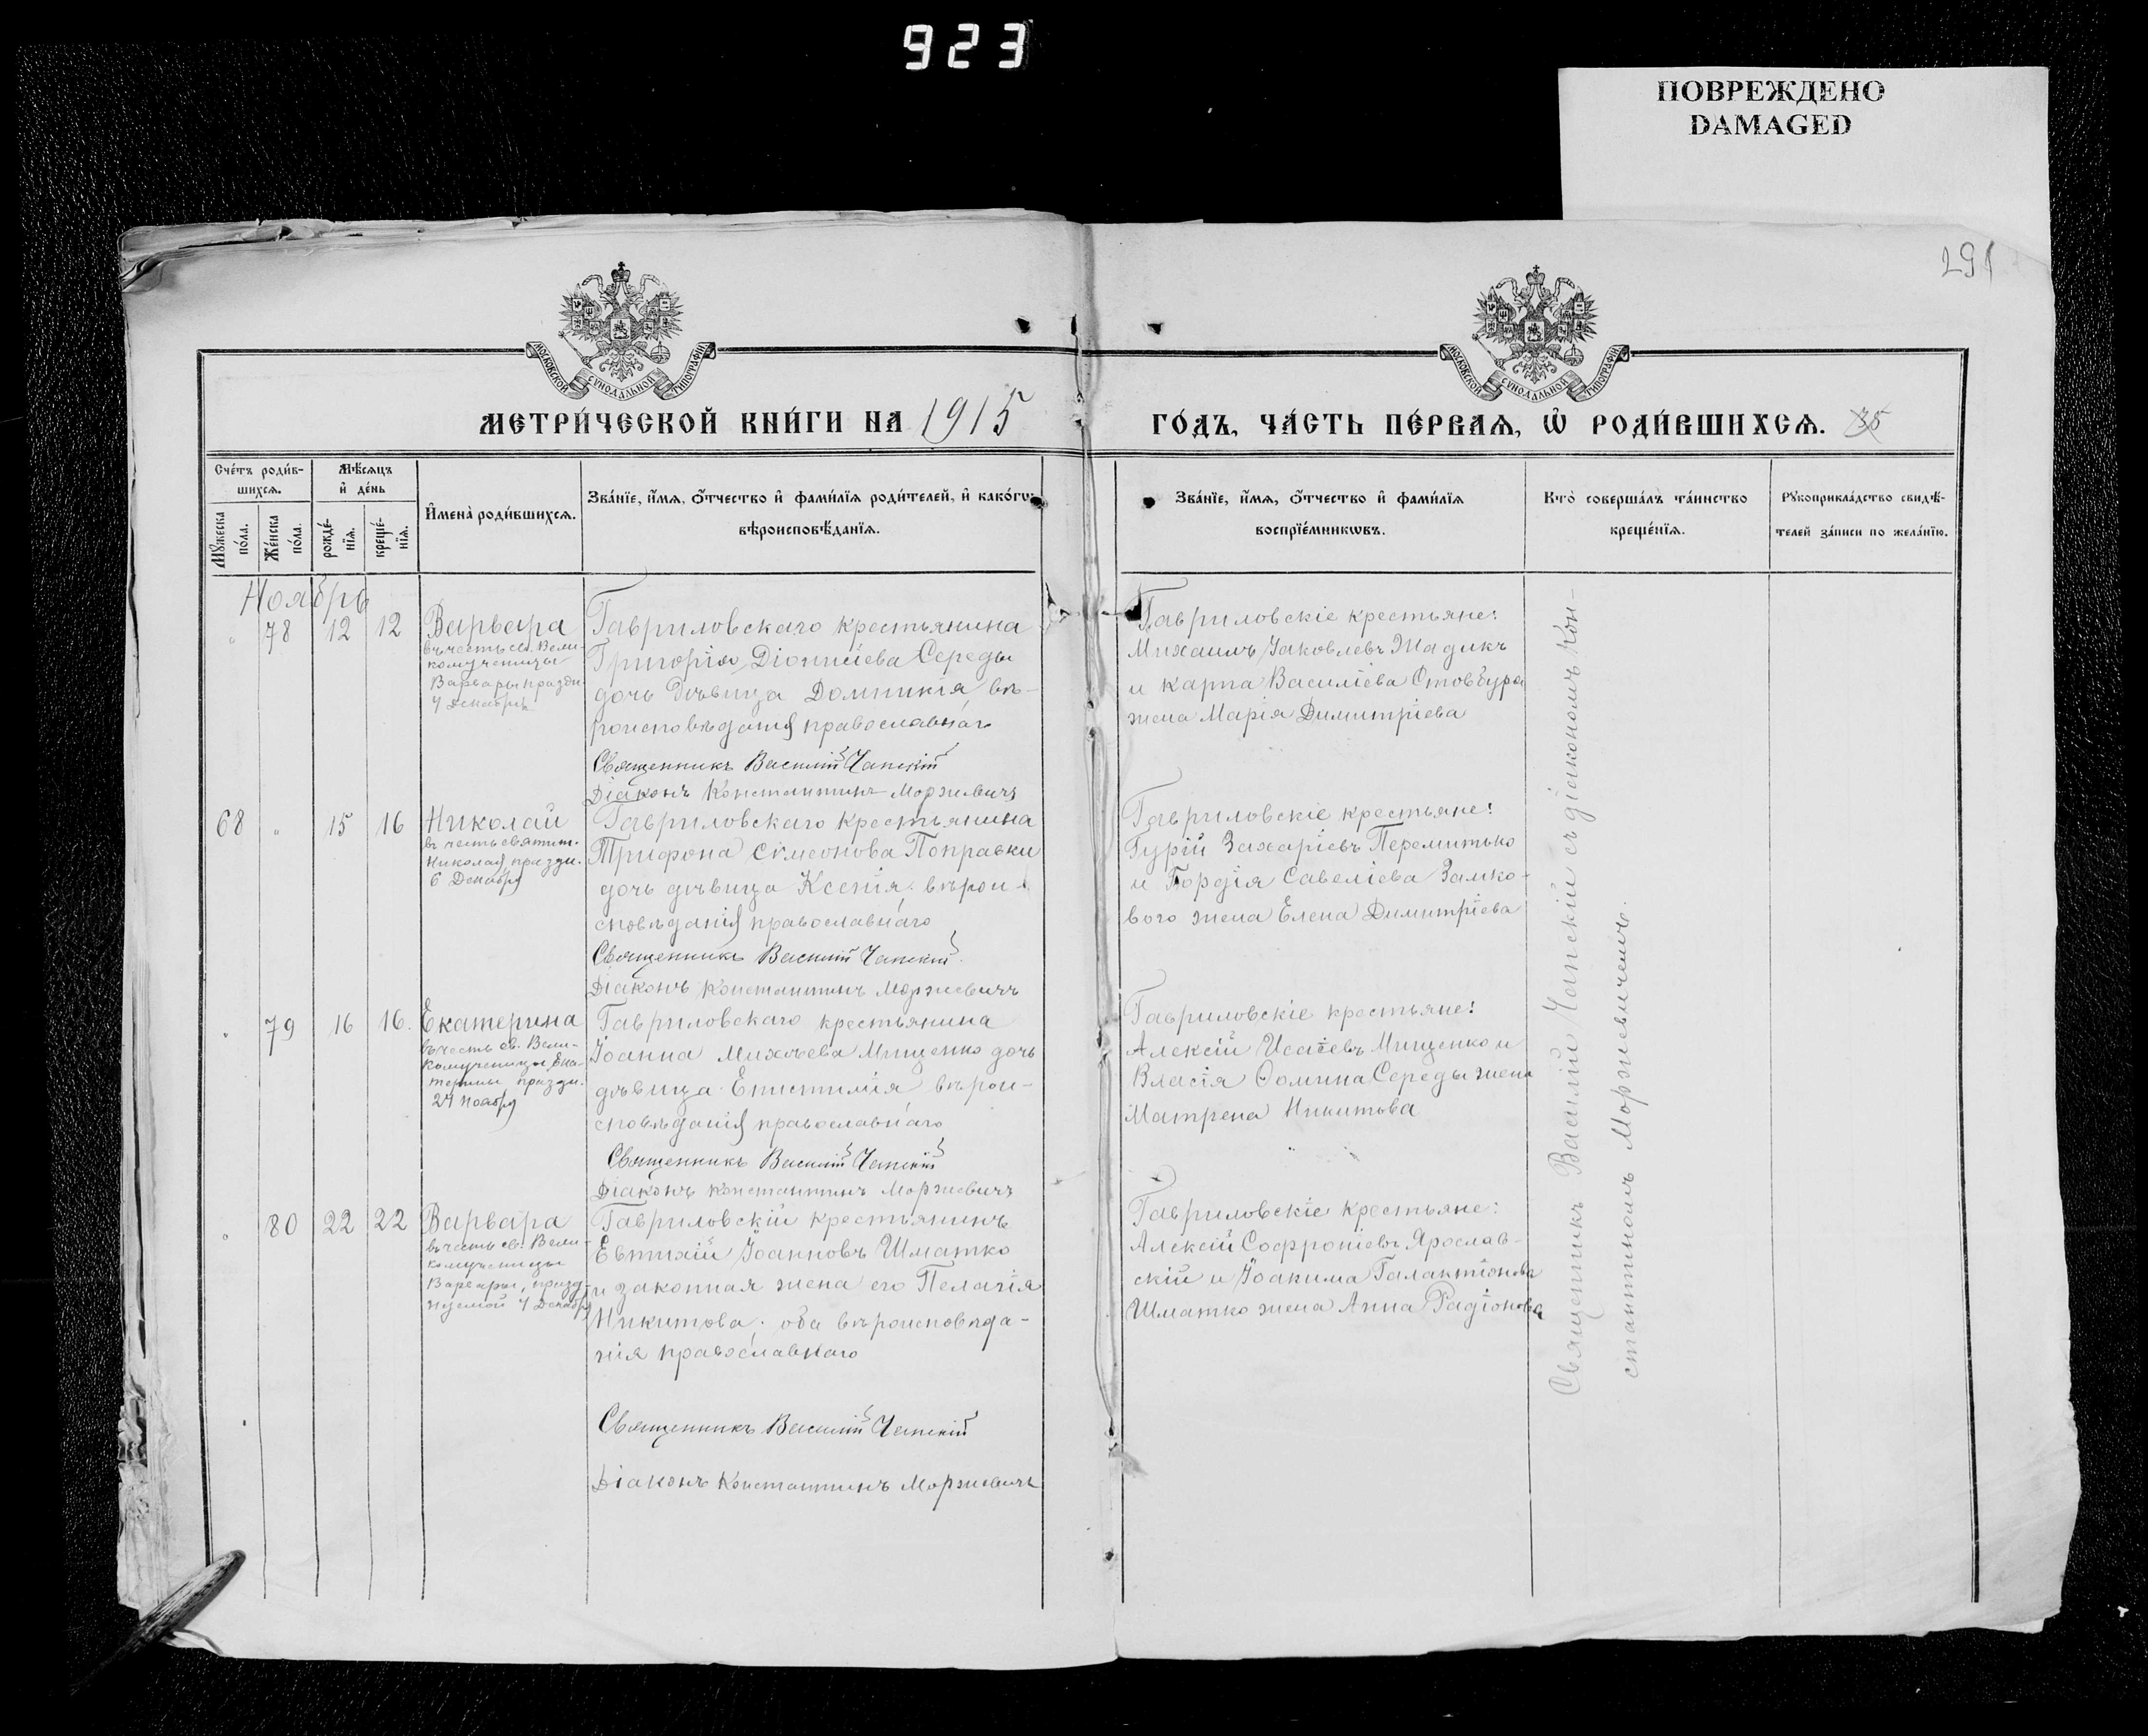 923
ПОВРЕЖДЕНО
DAMAGED
291
МОСКОВСКОЙ СУНОДАЛЬНОЙ ТИПОГРАФІИ
МОСКОВСКОЙ СУНОДАЛЬНОЙ ТИПОГРАФІИ
МЕТРИ́ЧЕСКОЙ КНИ́ГИ НА 1915
ГО́ДЪ, ЧА́СТЬ ПЕ́РВАѦ, Ѡ҆ РОДИ́ВШИХСѦ. 35
Счéтъ роди́в-
шихсѧ.
Мꙋ́жеска
по́ла.
Же́нска
по́ла.
Мѣ́сѧцъ
и҆ де́нь
рожде́-
нїѧ.
креще́-
нїѧ.
И҆мена̀ роди́вшихсѧ.
Зва́нїе, и҆́мѧ, ѻ҆́тчество и҆ фами́лїѧ роди́телей, и҆ како́гѡ
вѣроисповѣ́данїѧ.
Зва́нїе, и҆́мѧ, ѻ҆́тчество и҆ фами́лїѧ
воспрїе́мникѡвъ.
Кто̀ соверша́лъ та́инство
креще́нїѧ.
Рꙋкоприкла́дство свидѣ́-
телей за́писи по жела́нїю.
Ноябрь
" 78 12 12
Варвара
въ честь св. Вели-
комученицы
Варвары праздн
4 Декабря
Гавриловскаго крестьянина
Григорія Діонисіева Середы
дочь дѣвица Домникія вѣ-
роисповѣданія православнаг
Священникъ Василій Чапскій
Діаконъ Константинъ Моржевичъ
Гавриловскіе крестьяне:
Михаилъ Іаковлевъ Жадикъ
и Карпа Василіева Стовбура
жена Марія Димитріева
68 " 15 16
Николай
въ честь святит.
Николая праздн.
6 Декабря
Гавриловскаго крестьянина
Трифона Симеонова Поправки
дочь дѣвица Ксенія. вѣрои-
сповѣданія православнаго
Священникъ Василій Чапскій
Діаконъ Константинъ Моржевичъ
Гавриловскіе крестьяне:
Гурій Захаріевъ Перемитько
и Гордія Савеліева Замко-
вого жена Елена Димитріева
" 79 16 16.
Екатерина
въ честь св. Вели-
комученицы Ека-
терины праздн.
24 Ноября
Гавриловскаго крестьянина
Іоанна Михеева Мищенко дочь
дѣвица Епистимія вѣрои-
сповѣданія православнаго
Священникъ Василій Чапскій
Діаконъ Константинъ Моржевичъ
Гавриловскіе крестьяне:
Алексій Исаіевъ Мищенко и
Власія Ѳомина Середы жена
Матрена Никитова
" 80 22 22
Варвара
въ честь св. Вели-
комученицы
Варвары, празд-
нуемой 4 Декабря
Гавриловскій крестьянинъ
Евтихій Іоанновъ Шматко
и законная жена его Пелагія
Никитова; оба вѣроисповѣда-
нія православнаго
Священникъ Василій Чапскій
Діаконъ Константинъ Моржевичъ
Гавриловскіе крестьяне:
Алексій Софроніевъ Ярослав-
скій и Іоакима Галактіонова
Шматко жена Анна Радіонова
Священникъ Василій Чапскій съ діакономъ Кон-
стантиномъ Моржевичемъ.